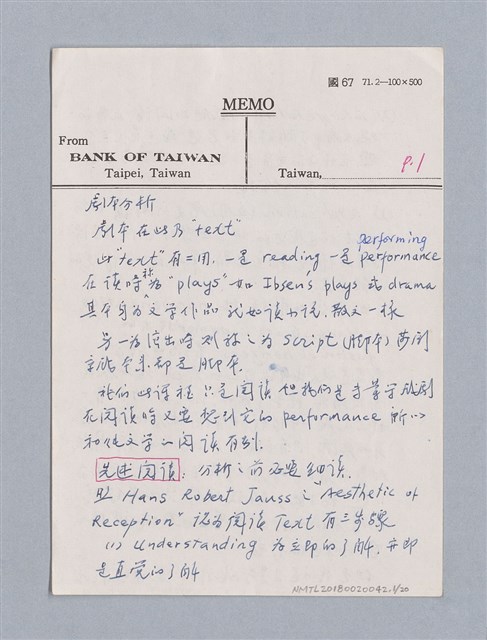 國 67 71.2—100×500
MEMO
From
BANK OF TAIWAN
Taipei, Taiwan
Taiwan,
P.1
劇本分析
劇本在此乃 "text"
performing
此 "text" 有二用, 一是 reading 一是 performance
在读時称為 "plays" 如 Ibsen's plays 或 drama
其本身為文学作品 就如读小说、散文一樣
另一為演出時則称之為 Script (脚本)
都是脚本.
我们此课程只是阅读 但我们是
在阅读時又要想到它的 performance 所以
和纯文学的阅读有别.
先述阅读: 分析之前必要细读.
照 Hans Robert Jauss 之 "Aesthetic of
Reception" 认為阅读 Text 有三步骤
(1) Understanding 為立即的了解, 亦即
是直觉的了解
NMTL20180020042, 1/20